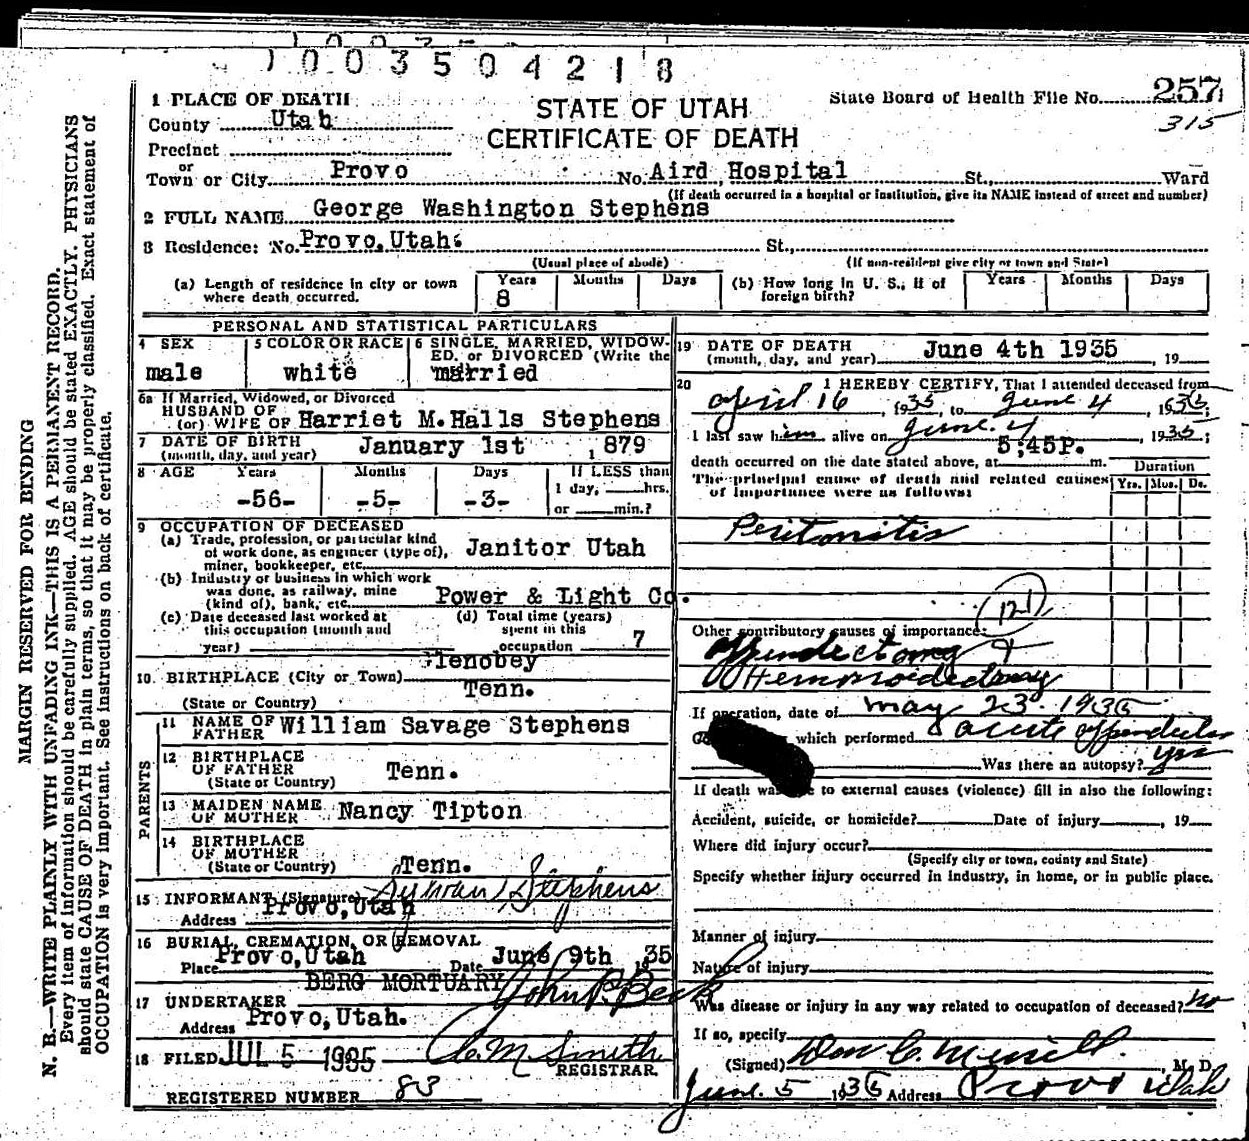 1003504218
1 PLACE OF DEATH
STATE OF UTAH
CERTIFICATE OF DEATH
State Board of Health File No. 257
315
County Utah
Precinct
or
Town or City Provo No. Aird Hospital St., Ward
(If death occurred in a hospital or institution, give its NAME instead of street and number)
2 FULL NAME George Washington Stephens
3 Residence: No. Provo, Utah. St.,
(Usual place of abode) (If non-resident give city or town and State)
(a) Length of residence in city or town where death occurred. Years 8 Months Days
(b) How long in U. S., if of foreign birth? Years Months Days
PERSONAL AND STATISTICAL PARTICULARS
4 SEX male
5 COLOR OR RACE white
6 SINGLE, MARRIED, WIDOW-
ED, or DIVORCED (Write the
married
6a If Married, Widowed, or Divorced
HUSBAND OF
(or) WIFE OF Harriet M. Halls Stephens
7 DATE OF BIRTH
(month, day, and year) January 1st 1879
8 AGE Years Months Days If LESS than
-56- -5- -3- 1 day, hrs.
or min.?
9 OCCUPATION OF DECEASED
(a) Trade, profession, or particular kind
of work done, as engineer (type of),
miner, bookkeeper, etc. Janitor Utah
(b) Industry or business in which work
was done, as railway, mine
(kind of), bank, etc. Power & Light Co.
(c) Date deceased last worked at
this occupation (month and
year)
(d) Total time (years)
spent in this
occupation 7
10 BIRTHPLACE (City or Town)
(State or Country) Tenn.
PARENTS
11 NAME OF
FATHER William Savage Stephens
12 BIRTHPLACE
OF FATHER
(State or Country) Tenn.
13 MAIDEN NAME
OF MOTHER Nancy Tipton
14 BIRTHPLACE
OF MOTHER
(State or Country) Tenn.
15 INFORMANT (Signature) Stephens
Address Provo, Utah
16 BURIAL, CREMATION, OR REMOVAL
Place Provo, Utah Date June 9th 1935
BERG MORTUARY
17 UNDERTAKER
Address Provo, Utah.
18 FILED JUL 5 1935 C. M. Smith
REGISTRAR.
REGISTERED NUMBER 83
19 DATE OF DEATH
(month, day, and year) June 4th 1935, 19
20 I HEREBY CERTIFY, That I attended deceased from
April 16, 1935, to June 4, 1935;
I last saw him alive on June 4, 1935;
death occurred on the date stated above, at 5;45P. m.
The principal cause of death and related causes
of importance were as follows:
Duration
Yrs. Mos. Ds.
Peritonitis
121
Other contributory causes of importance:
Appendectomy &
Hemorroidectomy
If operation, date of May 23. 1935
which performed acute
Was there an autopsy? yes
If death was to external causes (violence) fill in also the following:
Accident, suicide, or homicide? Date of injury , 19
Where did injury occur?
(Specify city or town, county and State)
Specify whether injury occurred in industry, in home, or in public place.
Manner of injury
Nature of injury
Was disease or injury in any way related to occupation of deceased? No
If so, specify
(Signed) Don C. Merrill. , M. D.
June 5 1935 Address Provo Utah
MARGIN RESERVED FOR BINDING
N. B.—WRITE PLAINLY WITH UNFADING INK—THIS IS A PERMANENT RECORD.
Every item of information should be carefully supplied. AGE should be stated EXACTLY. PHYSICIANS
should state CAUSE OF DEATH in plain terms, so that it may be properly classified. Exact statement of
OCCUPATION is very important. See instructions on back of certificate.